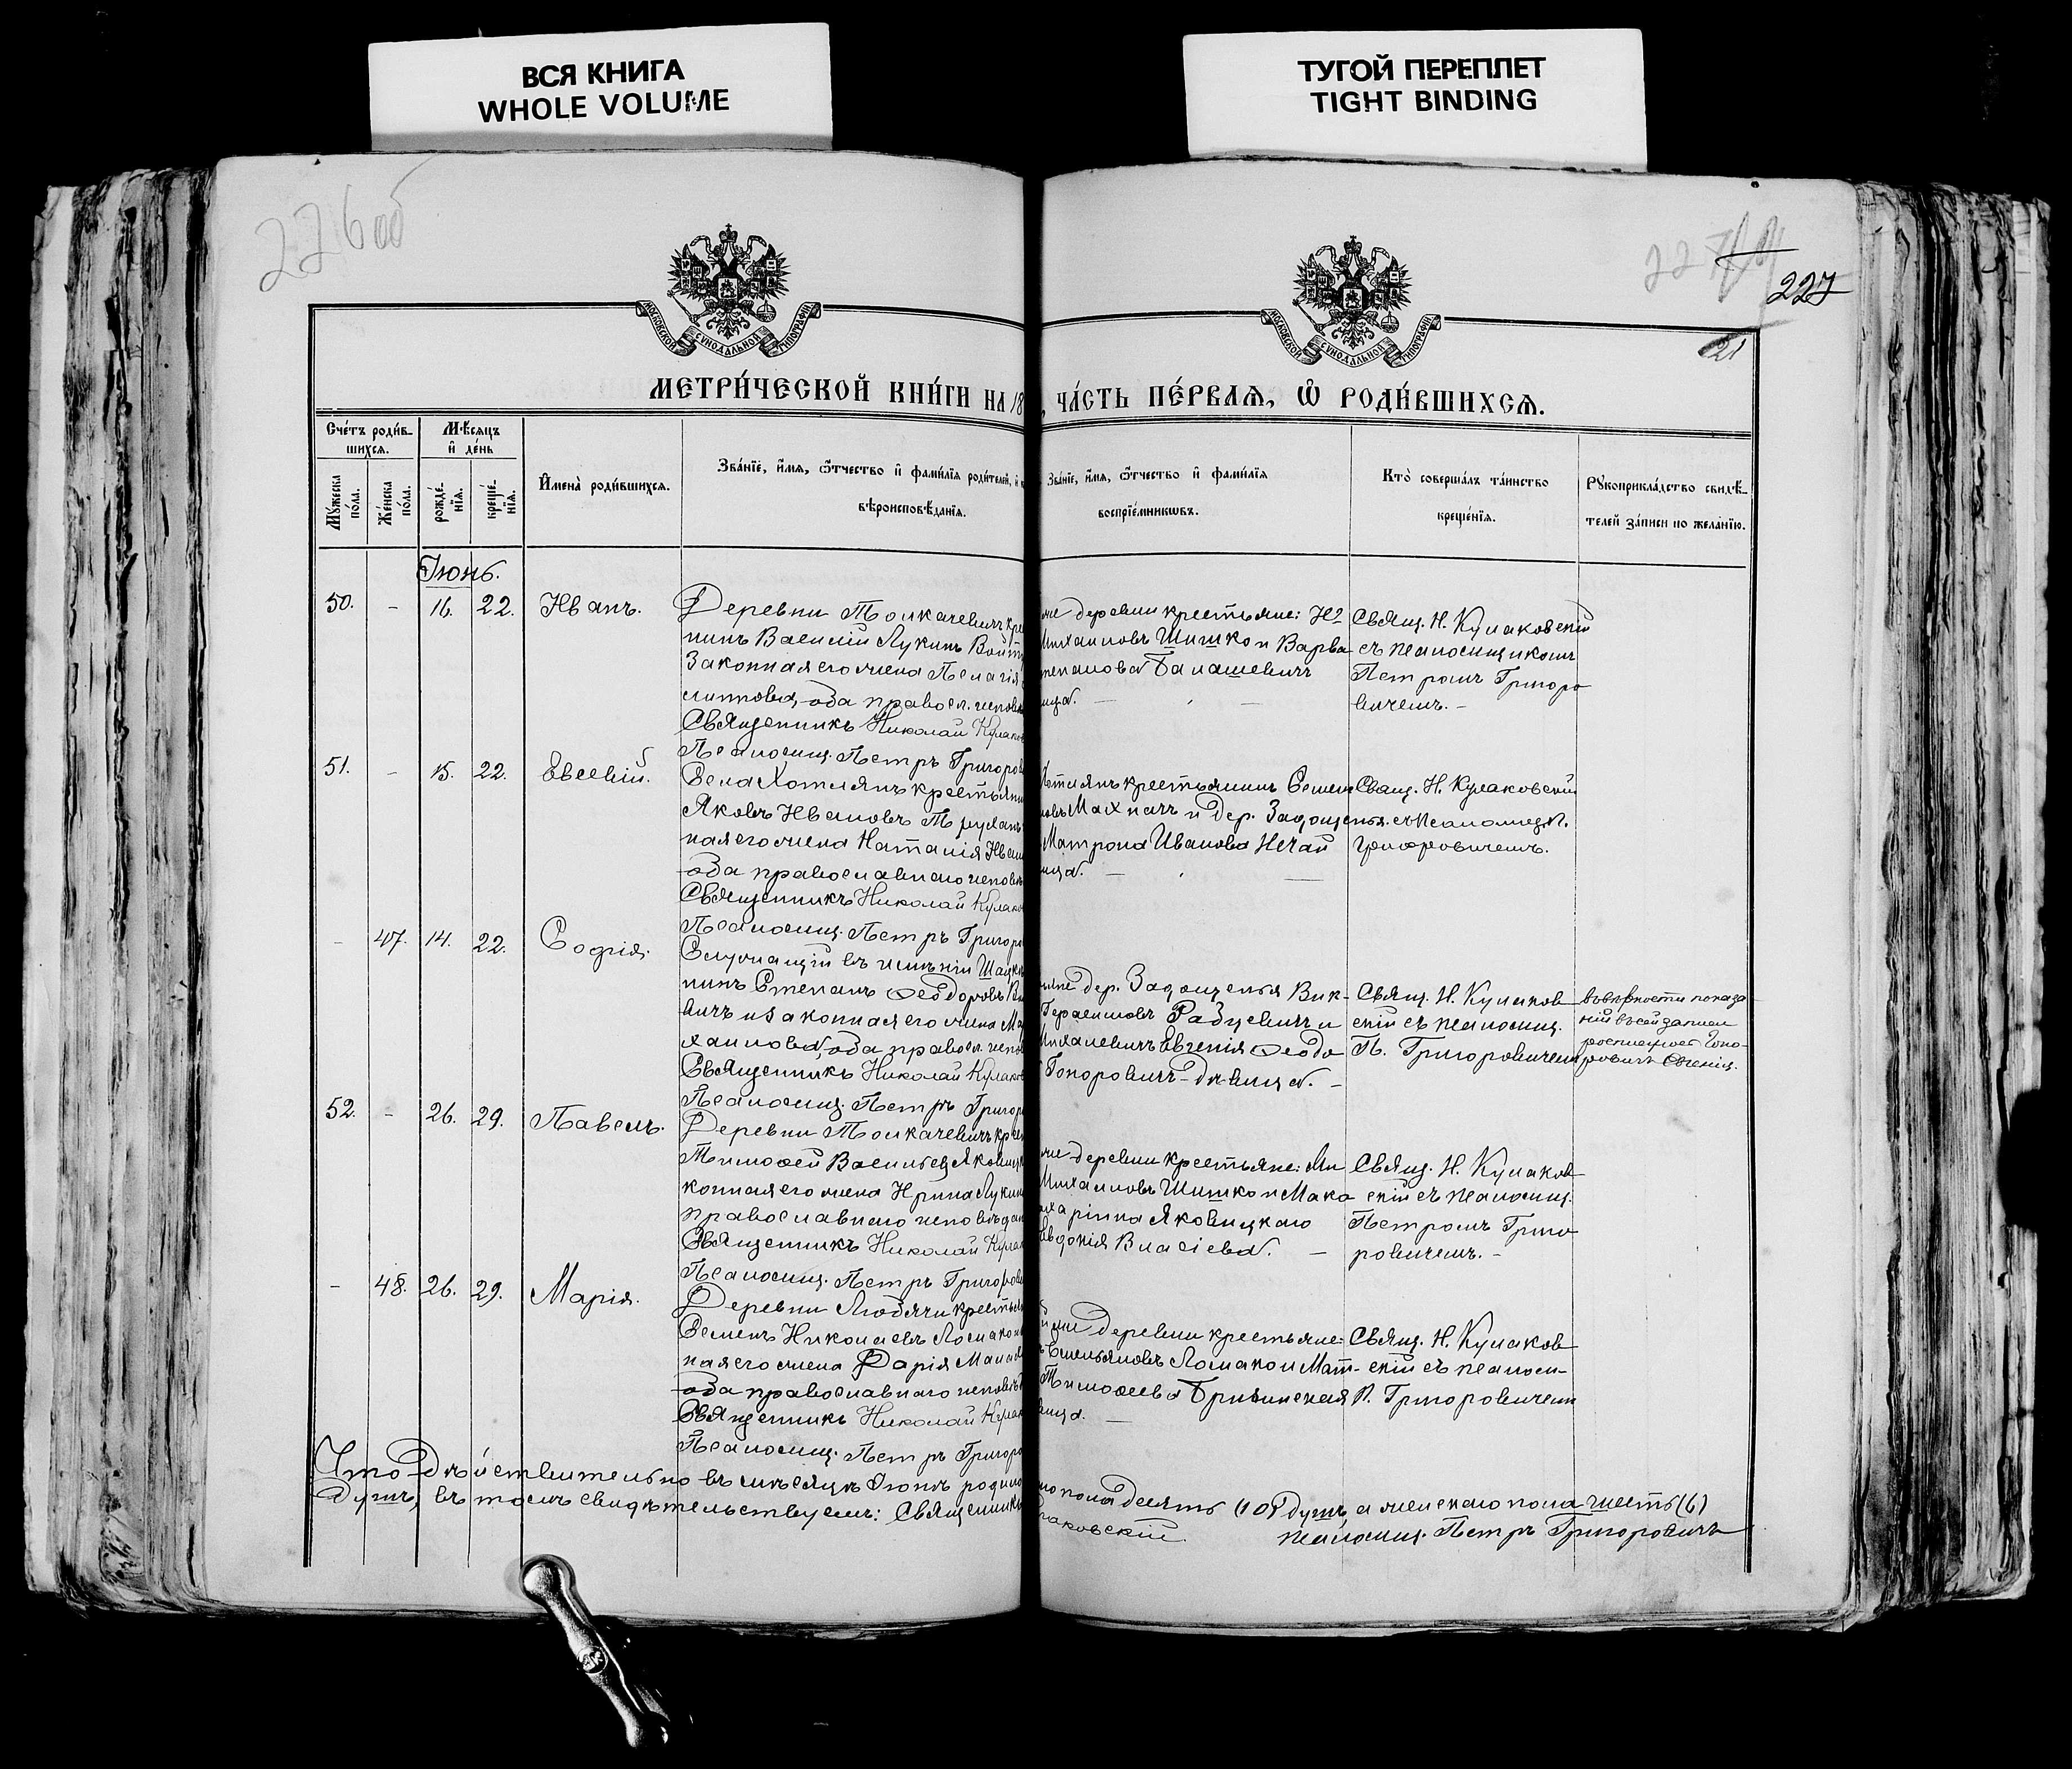 ВСЯ КНИГА
WHOLE VOLUME
ТУГОЙ ПЕРЕПЛЕТ
TIGHT BINDING
226 об
227
227
21
МОСКОВСКОЙ СѴНОДАЛЬНОЙ ТИПОГРАФІИ.
МОСКОВСКОЙ СѴНОДАЛЬНОЙ ТИПОГРАФІИ.
МЕТРИ́ЧЕСКОЙ КНИ́ГИ НА 18
, ЧА́СТЬ ПЕ́РВАѦ, Ѽ РОДИ́ВШИХСѦ.
Сче́тъ роди́в-
шихсѧ.
Мѣ́сяцъ
и҆ де́нь
Мꙋ́жеска по́ла.
Же́нска по́ла.
рожде́-нїѧ.
креще́-нїѧ.
И҆мена̀ роди́вшихсѧ.
Зва́нїе, и҆́мѧ, ѻ҆́тчество и҆ фами́лїѧ роди́телей, и҆ к
вѣроисповѣ́данїѧ.
Зва́нїе, и҆́мѧ, ѻ҆́тчество и҆ фами́лїѧ
воспрїе́мникѡвъ.
Кто̀ соверша́лъ та́инство
креще́нїѧ.
Рꙋкоприкла́дство свидѣ́-
телей за́писи по жела́нїю.
Іюнь.
50. - 16. 22. Иванъ.
Деревни Толкачевичъ кре
нинъ Василій Лукинъ Войт
законная его жена Пелагія
липпова, оба правосл. испов
Священникъ Николай Кулаков
Псаломщ. Петръ Григоров
же деревни крестьяне: И
Михаиловъ Шишко и Варва
тепанова Балашевичъ
ица.
Свящ. Н. Кулаковскій
съ псаломщикомъ
Петромъ Григоро
вичемъ.
51. - 15. 22. Евсевій.
Села Хотлянъ крестьяни
Яковъ Ивановъ Трухан
ная его жена Наталія Иван
оба православнаго исповѣ
Священникъ Николай Кулаков
Псаломщ. Петръ Григоро
отлянъ крестьянинъ Семен
новъ Махначъ и дер. Задощенья
Матрона Иванова Нечай
ица.
Свящ. Н. Кулаковскій
съ псаломщ. П.
Григоровичемъ.
- 47. 14. 22. Софія.
Служащій въ имѣніи Шацкъ
нинъ Степанъ Ѳеодоровъ Ви
вичъ и законная его жена Ма
хаилова, оба правосл. испов
Священникъ Николай Кулаков
Псаломщ. Петръ Григор
яне дер. Задощенья Вик-
Герасимовъ Радцевичъ и
Михалевичъ Евгенія Ѳеодо
Гонорович- дѣвица.
Свящ. Н. Кулаков
скій съ псаломщ.
П. Григоровичемъ
въ вѣрности показа
ній въ сей записи
росписуюсь Гоно-
ровичъ Евгенія.
52. - 26. 29. Павелъ.
Деревни Толкачевичъ крес
Тимоѳей Васильевъ Яковицк
конная его жена Ирина Лукин
православнаго исповѣдан
Священникъ Николай Кулак
Псаломщ. Петръ Григоров
же деревни крестьяне: Ми
Михаиловъ Шишко и Мака
Яковицкаго
Евдокія Власіева.
Свящ. Н. Кулаков
скій съ псаломщ.
Петромъ Григо
ровичемъ.
- 48. 26. 29. Марія.
Деревни Любячи крестья
Семенъ Николаевъ Ломако
ная его жена Дарія
оба православнаго исповѣ
Священникъ Николай Кулак
Псаломщ. Петръ Григоро
же деревни крестьяне:
Емельяновъ Ломако и Мат-
Тимоѳеева Бривинская
вица.
Свящ. Н. Кулаков
скій съ псалом-
П. Григоровичемъ
Что дѣйствительно въ мѣсяцѣ Іюнѣ родило
но пола десять (10) душъ, а женскаго пола шесть (6)
душъ, въ томъ свидѣтельствуемъ: Священникъ
лаковскій. псаломщ. Петръ Григоровичъ